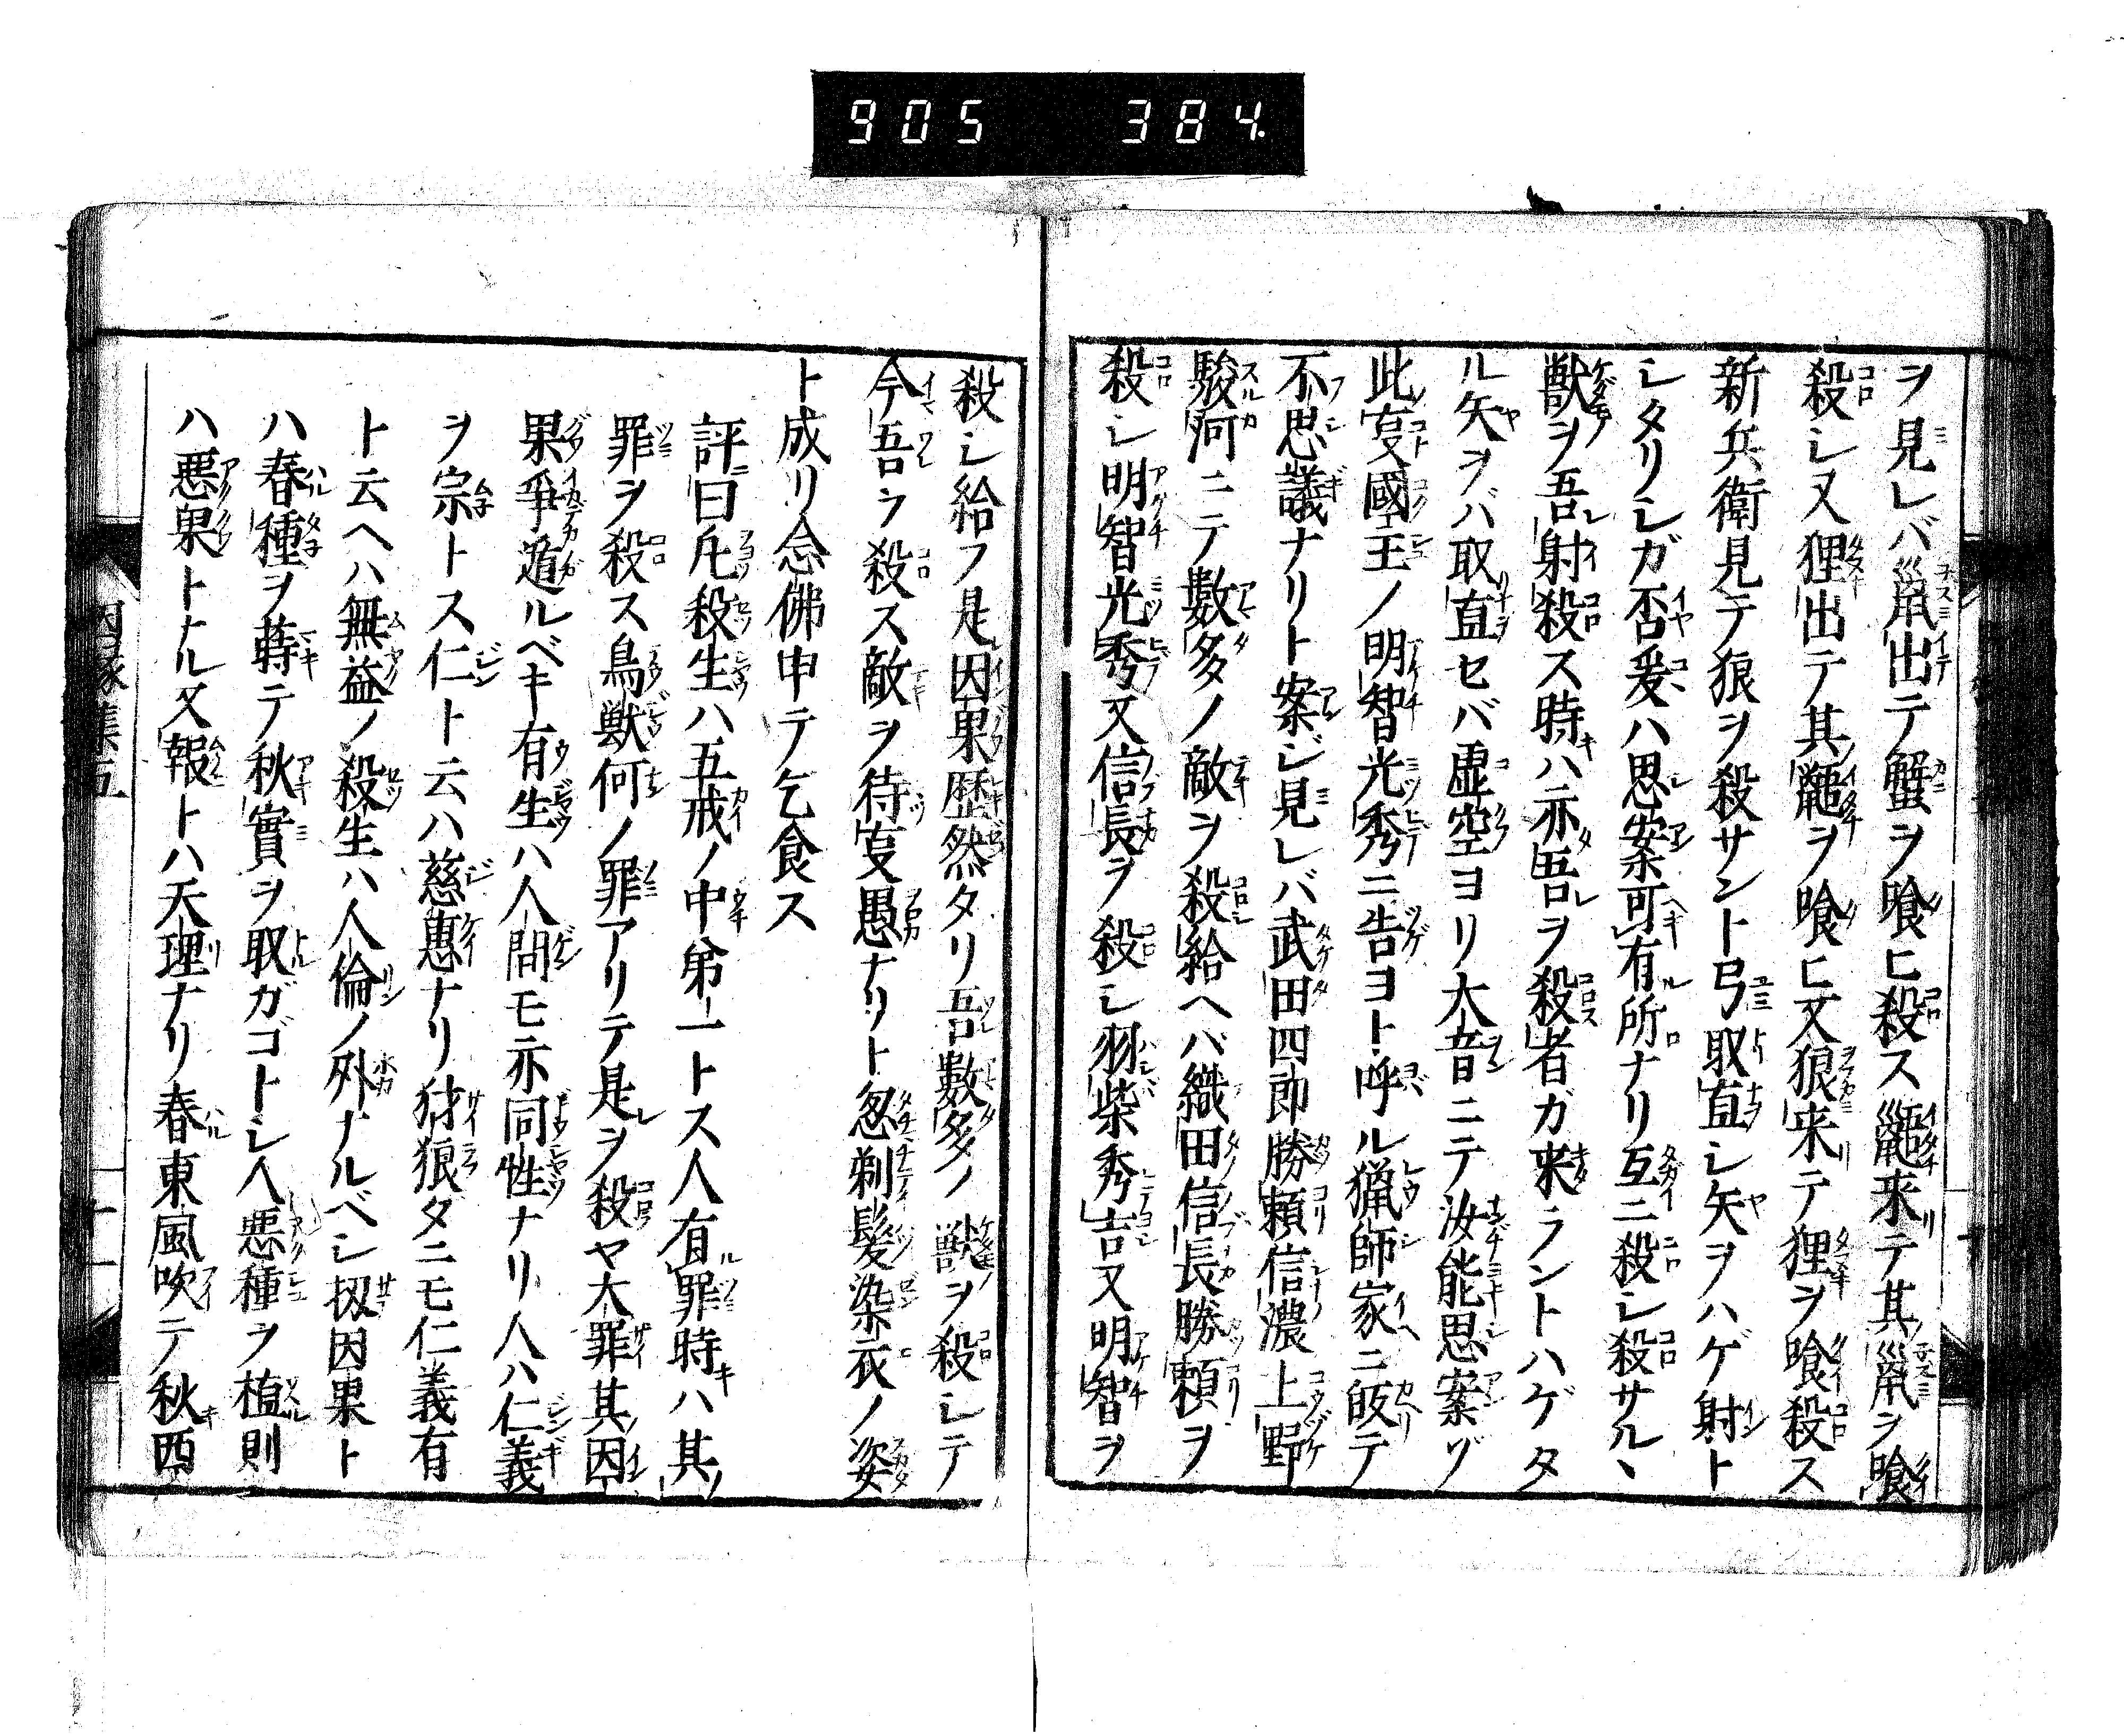 905 384.
ヲ見レバ鼠出テ蟹ヲ喰ヒ殺ス鼬来テ其鼠ヲ喰
殺シ又狸出テ其鼬ヲ喰ヒ又狼来テ狸ヲ喰殺ス
新兵衛見テ狼ヲ殺サント弓取直シ矢ヲハゲ射ト
シタリシガ否爰ハ思案可有所ナリ互ニ殺シ殺サルヽ
獣ヲ吾射殺ス時ハ亦吾ヲ殺者ガ来ラントハゲタ
ル矢ヲバ取直セバ虚空ヨリ大音ニテ汝能思案ゾ
此叓國王ノ明智光秀ニ告ヨト呼ル猟師家ニ皈テ
不思議ナリト案ジ見レバ武田四郎勝頼信濃上野
駿河ニテ數多ノ敵ヲ殺給ヘバ織田信長勝頼ヲ
殺シ明智光秀又信長ヲ殺シ羽柴秀吉又明智ヲ
殺シ給フ是因果歴然タリ吾數多ノ獣ヲ殺シテ
今吾ヲ殺ス敵ヲ待叓愚ナリト忽剃髪染衣ノ姿
ト成リ念佛申テ乞食ス
評曰凢殺生ハ五戒ノ中第一トス人有罪時ハ其
罪ヲ殺ス鳥獣何ノ罪アリテ是ヲ殺ヤ大罪其因
果爭遁ルベキ有生ハ人間モ亦同性ナリ人ハ仁義
ヲ宗トス仁ト云ハ慈惠ナリ豺狼タニモ仁義有
ト云ヘハ無益ノ殺生ハ人倫ノ外ナルベシ扨因果ト
ハ春種ヲ蒔テ秋實ヲ取ガゴトシ人悪種ヲ植則
ハ悪果トナル又報トハ天理ナリ春東風吹テ秋西
因縁集五
十一